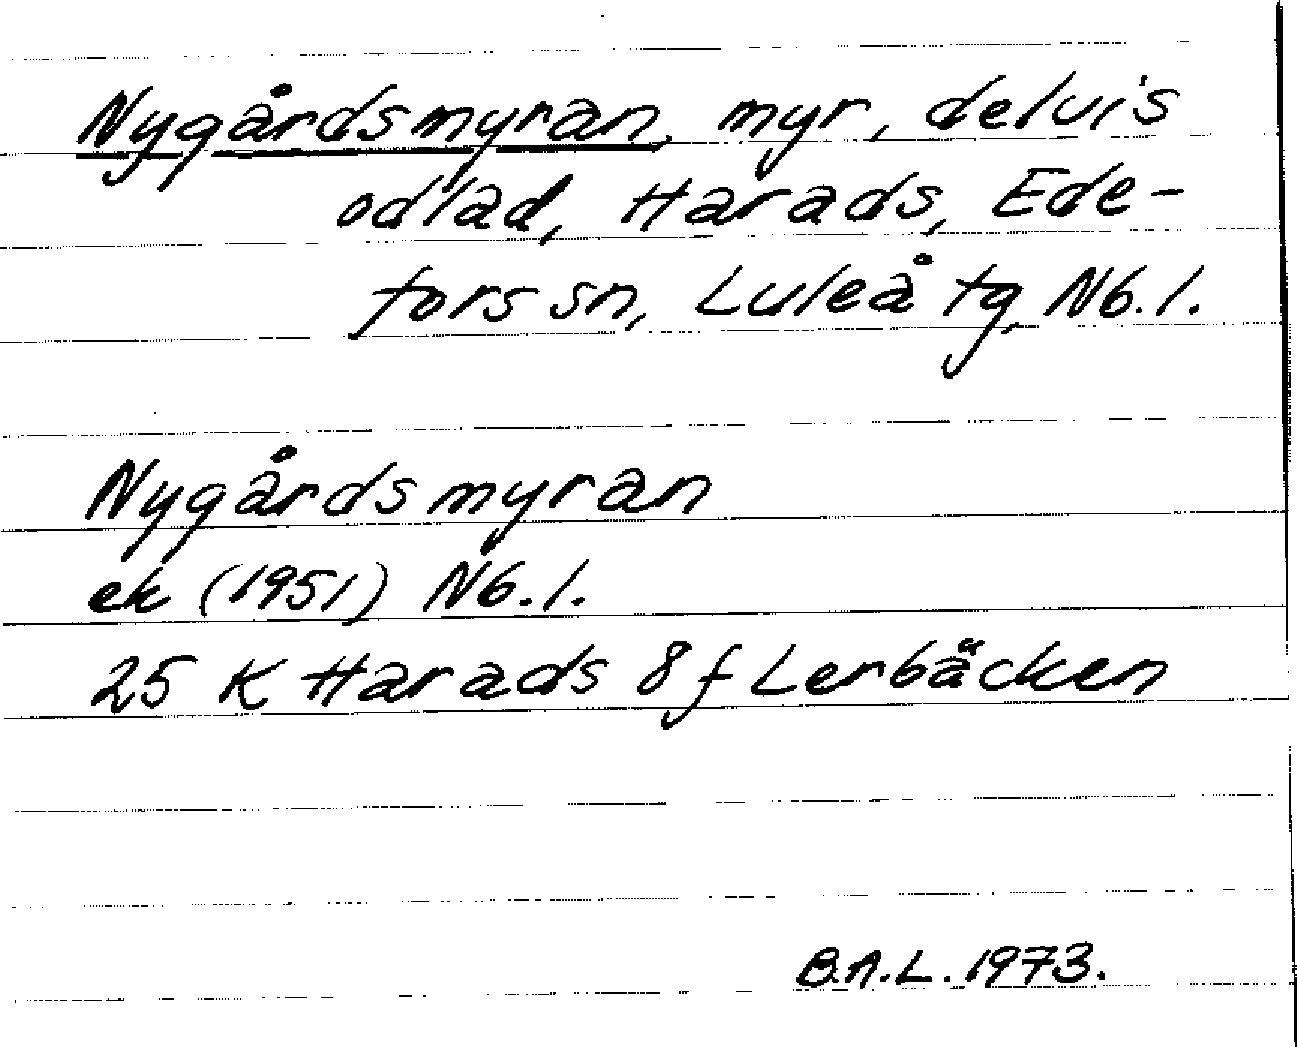 Nygårdsmyran, myr, delvis
odlad, Harads, Ede-
fors sn, Luleå tg, Nb.l.
Nygårdsmyran
ek (1951) Nb.l.
25 K Harads 8 f Lerbäcken
B.A.L. 1973.